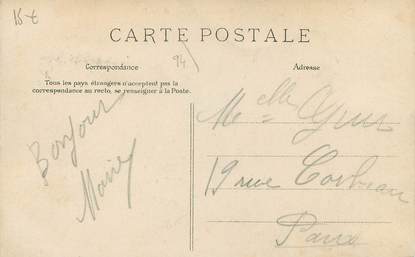 15€
CARTE POSTALE
Correspondance
94
Adresse
Tous les pays étrangers n'acceptent pas la
correspondance au recto, se renseigner à la Poste.
Bonjour
Marie
Melle
19 rue
Paris